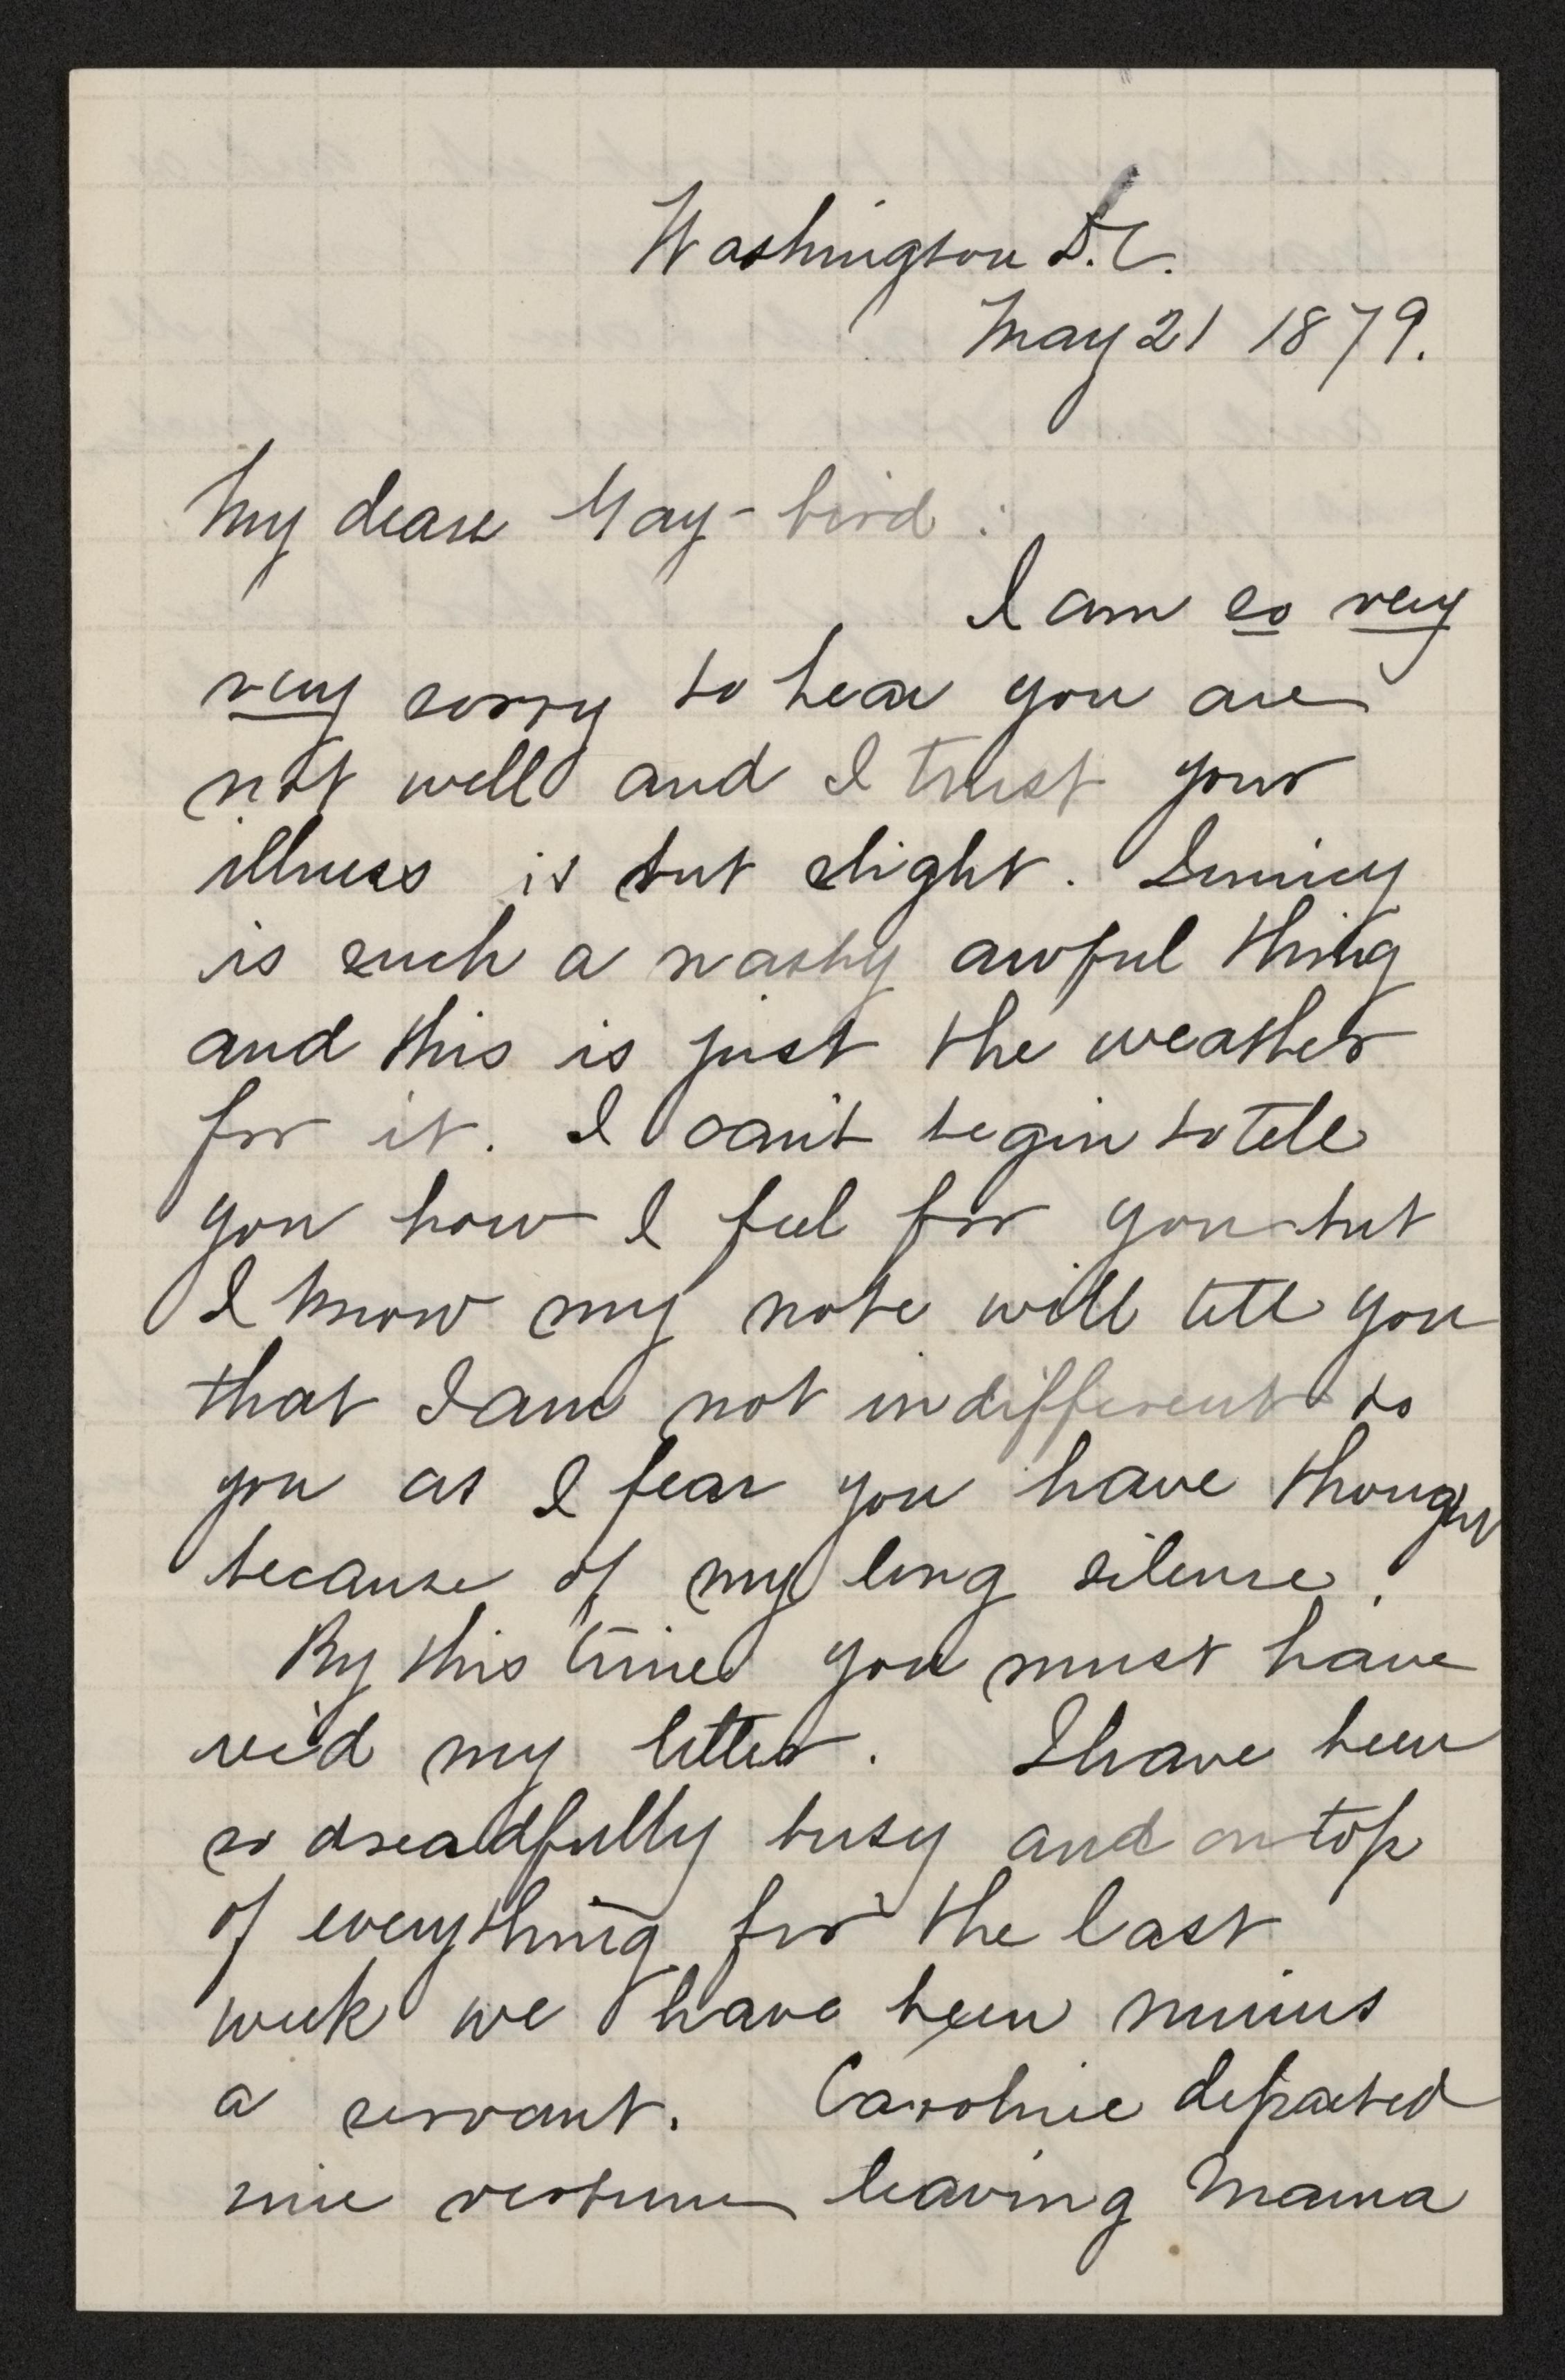 Washington D.C.
May 21 1879.
My dear May-bird :
I am so very
very sorry to hear you are
not well and I trust your
illness is but slight.
is such a nasty awful thing
and this is just the weather
for it. I can't begin to tell
you how I feel for you but
I know my note will tell you
that I am not indifferent to
you as I fear you have thought
because of my long silence.
By this time you must have
rec'd my letter. I have been
so dreadfully busy and on top
of everything for the last
week we have been minus
a servant. Caroline departed
sine verbum leaving Mama